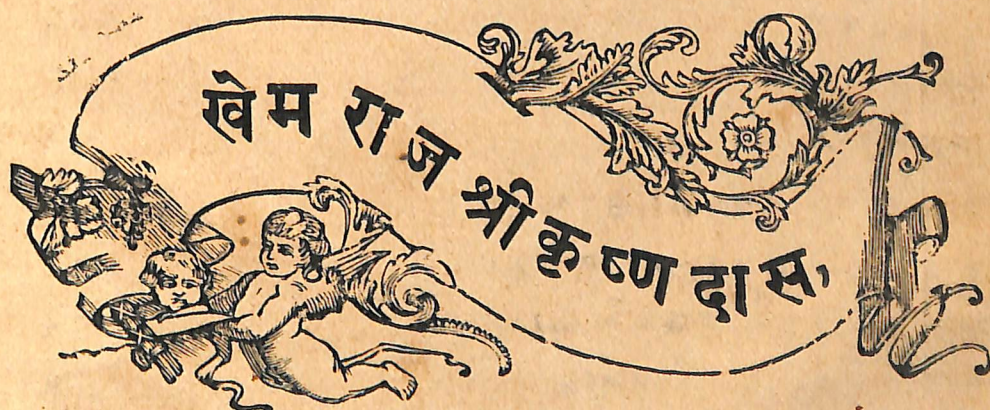 खेमराज श्रीकृष्णदास,